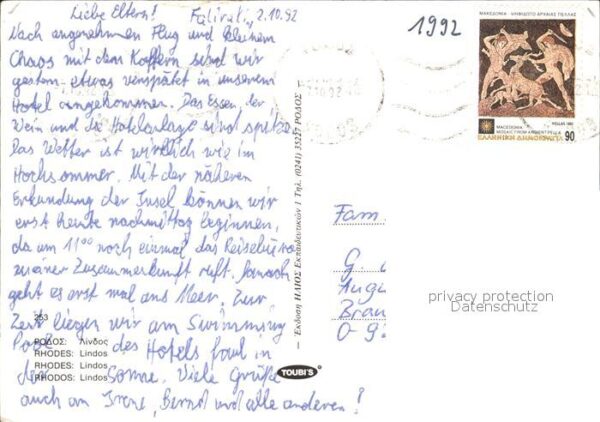 Liebe Eltern! Falirati, 2.10.92
Nach angenehmen Flug und kleinem
Chaos mit dem Koffern sind wir
gestern etwas verspätet in unserem
Hotel angekommen. Das Essen, der
Wein und die Hotelanlage sind spitze.
Das Wetter ist wirklich wie im
Hochsommer. Mit der näheren
Erkundung der Insel können wir
erst heute nachmittag beginnen,
da um 11⁰⁰ noch einmal das Reisebüro
zu einer Zusammenkunft ruft. Danach
geht es erst mal ans Meer. Zur
Zeit liegen wir am Swimming
Pool des Hotels faul in
der Sonne. Viele Grüße
auch an Irene, Bernd und alle anderen!
253
ΡΟΔΟΣ: Λίνδος
RHODES: Lindos
RHODES: Lindos
RHODOS: Lindos
Έκδοση ΗΛΙΟΣ Εκπαιδευτικών 1 Τηλ. (0241) 35257 ΡΟΔΟΣ
TOUBI'S
1992
ΜΑΚΕΔΟΝΙΑ - ΨΗΦΙΔΩΤΟ ΑΡΧΑΙΑΣ ΠΕΛΛΑΣ
HELLAS 1992
MACEDONIA
MOSAIC FROM ANCIENT PELLA
ΕΛΛΗΝΙΚΗ ΔΗΜΟΚΡΑΤΙΑ 90
Fam.
G.
Augu
Brau
O-9
privacy protection
Datenschutz